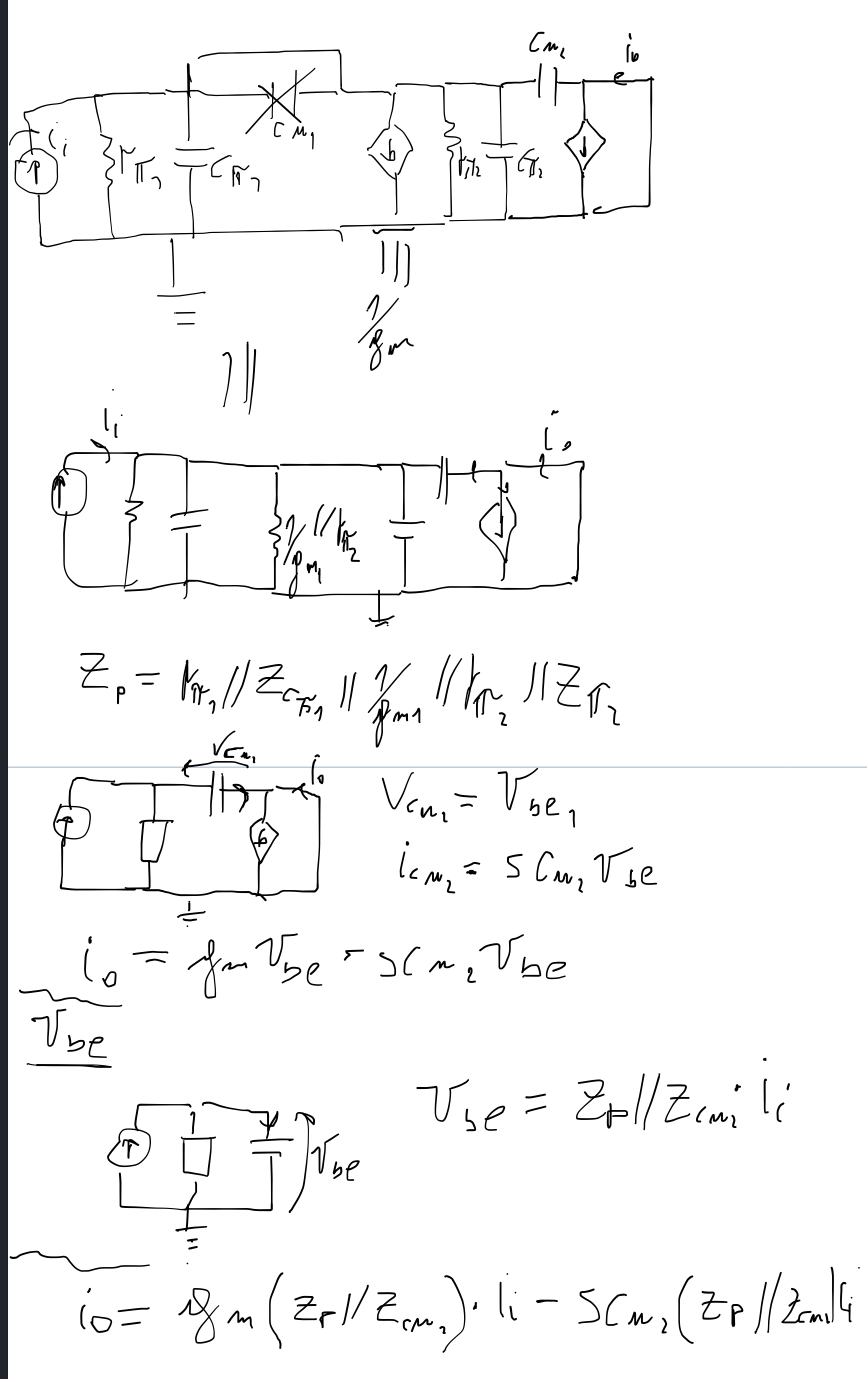 Cμ₂ i₀
i_i rπ₁ Cπ₁ Cμ₁ rπ₂ Cπ₂
1/gm
i_i i₀
1/gm₁ // rπ₂
Z_p = rπ₁ // Z_cπ₁ // 1/gm₁ // rπ₂ // Zπ₂
V_cμ₂ i₀ V_cμ₂ = V_be₁
i_cμ₂ = S Cμ₂ V_be
i₀ = gm V_be - SCμ₂ V_be
V_be
V_be = Z_p // Z_cμ₂ · i_i
V_be
i₀ = gm (Z_p // Z_cμ₂) · i_i - SCμ₂ (Z_p // Z_cμ₂) i_i